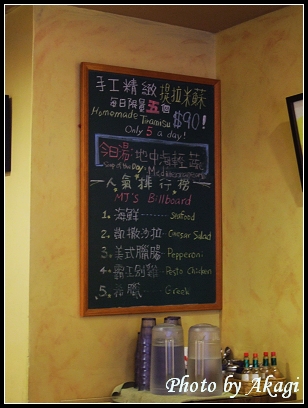 手工精緻 提拉米蘇
每日限量五個
Homemade Tiramisu $90!
Only 5 a day!
今日湯:地中海
Soup of the Day: Mediterranean
人氣排行榜
MJ's Billboard
1. 海鮮 Seafood
2. 凱撒沙拉 Caesar Salad
3. 美式臘腸 Pepperoni
4. Pesto Chicken
5. 希臘 Greek
Photo by Akagi